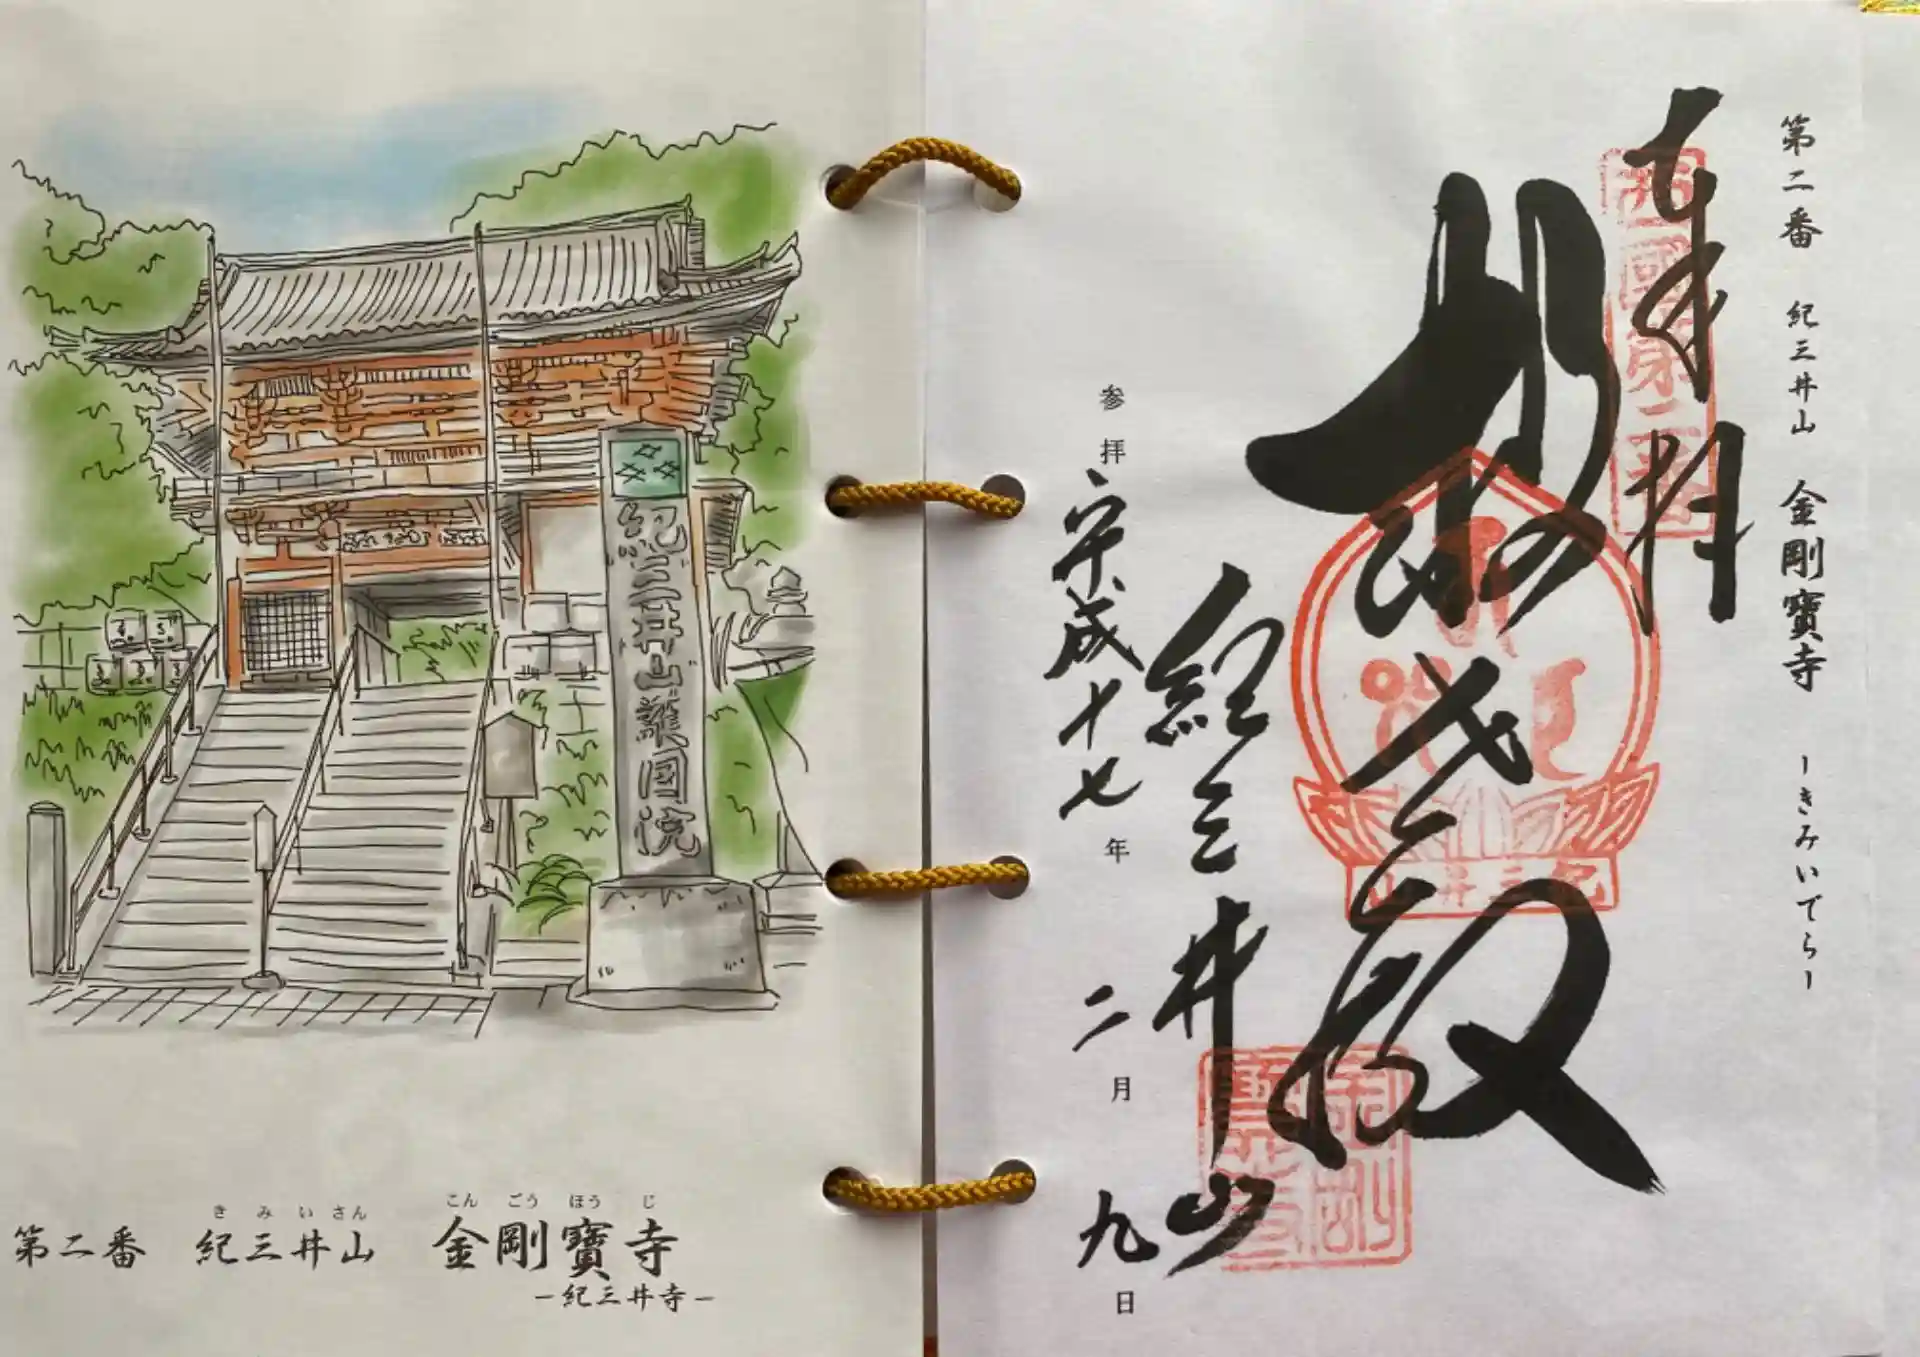 紀三井山護国院
きみいさん こんごうほうじ
第二番 紀三井山 金剛寶寺
－紀三井寺－
第二番 紀三井山 金剛寶寺 ーきみいでらー
奉拝
西國第二番
救世殿
紀三井山
紀三井山
金剛寶寺
参拝 平成十七年 二月九日